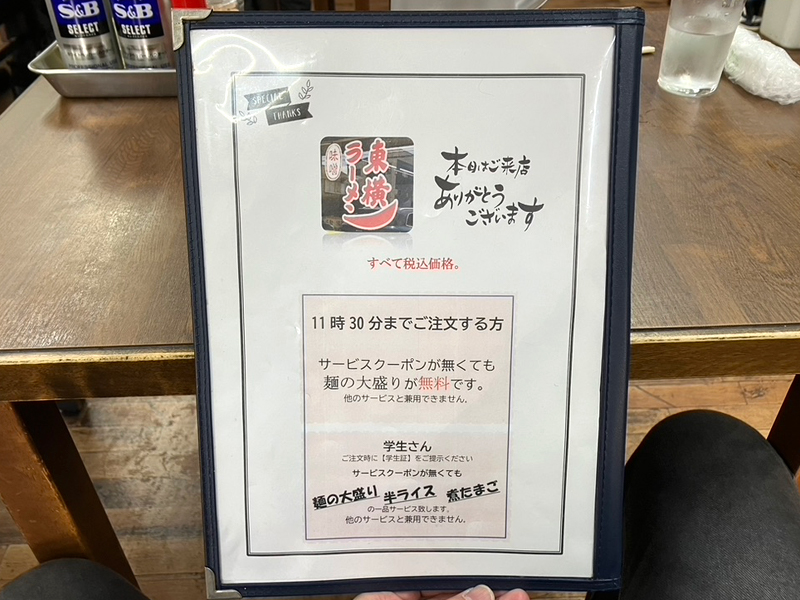 S&B
SELECT
S&B
SELECT
SPECIAL
THANKS
味噌
東横
ラーメン
本日はご来店
ありがとう
ございます
すべて税込価格。
11時30分までご注文する方
サービスクーポンが無くても
麺の大盛りが無料です。
他のサービスと兼用できません。
学生さん
ご注文時に【学生証】をご提示ください
サービスクーポンが無くても
麺の大盛り 半ライス 煮たまご
の一品サービス致します。
他のサービスと兼用できません。